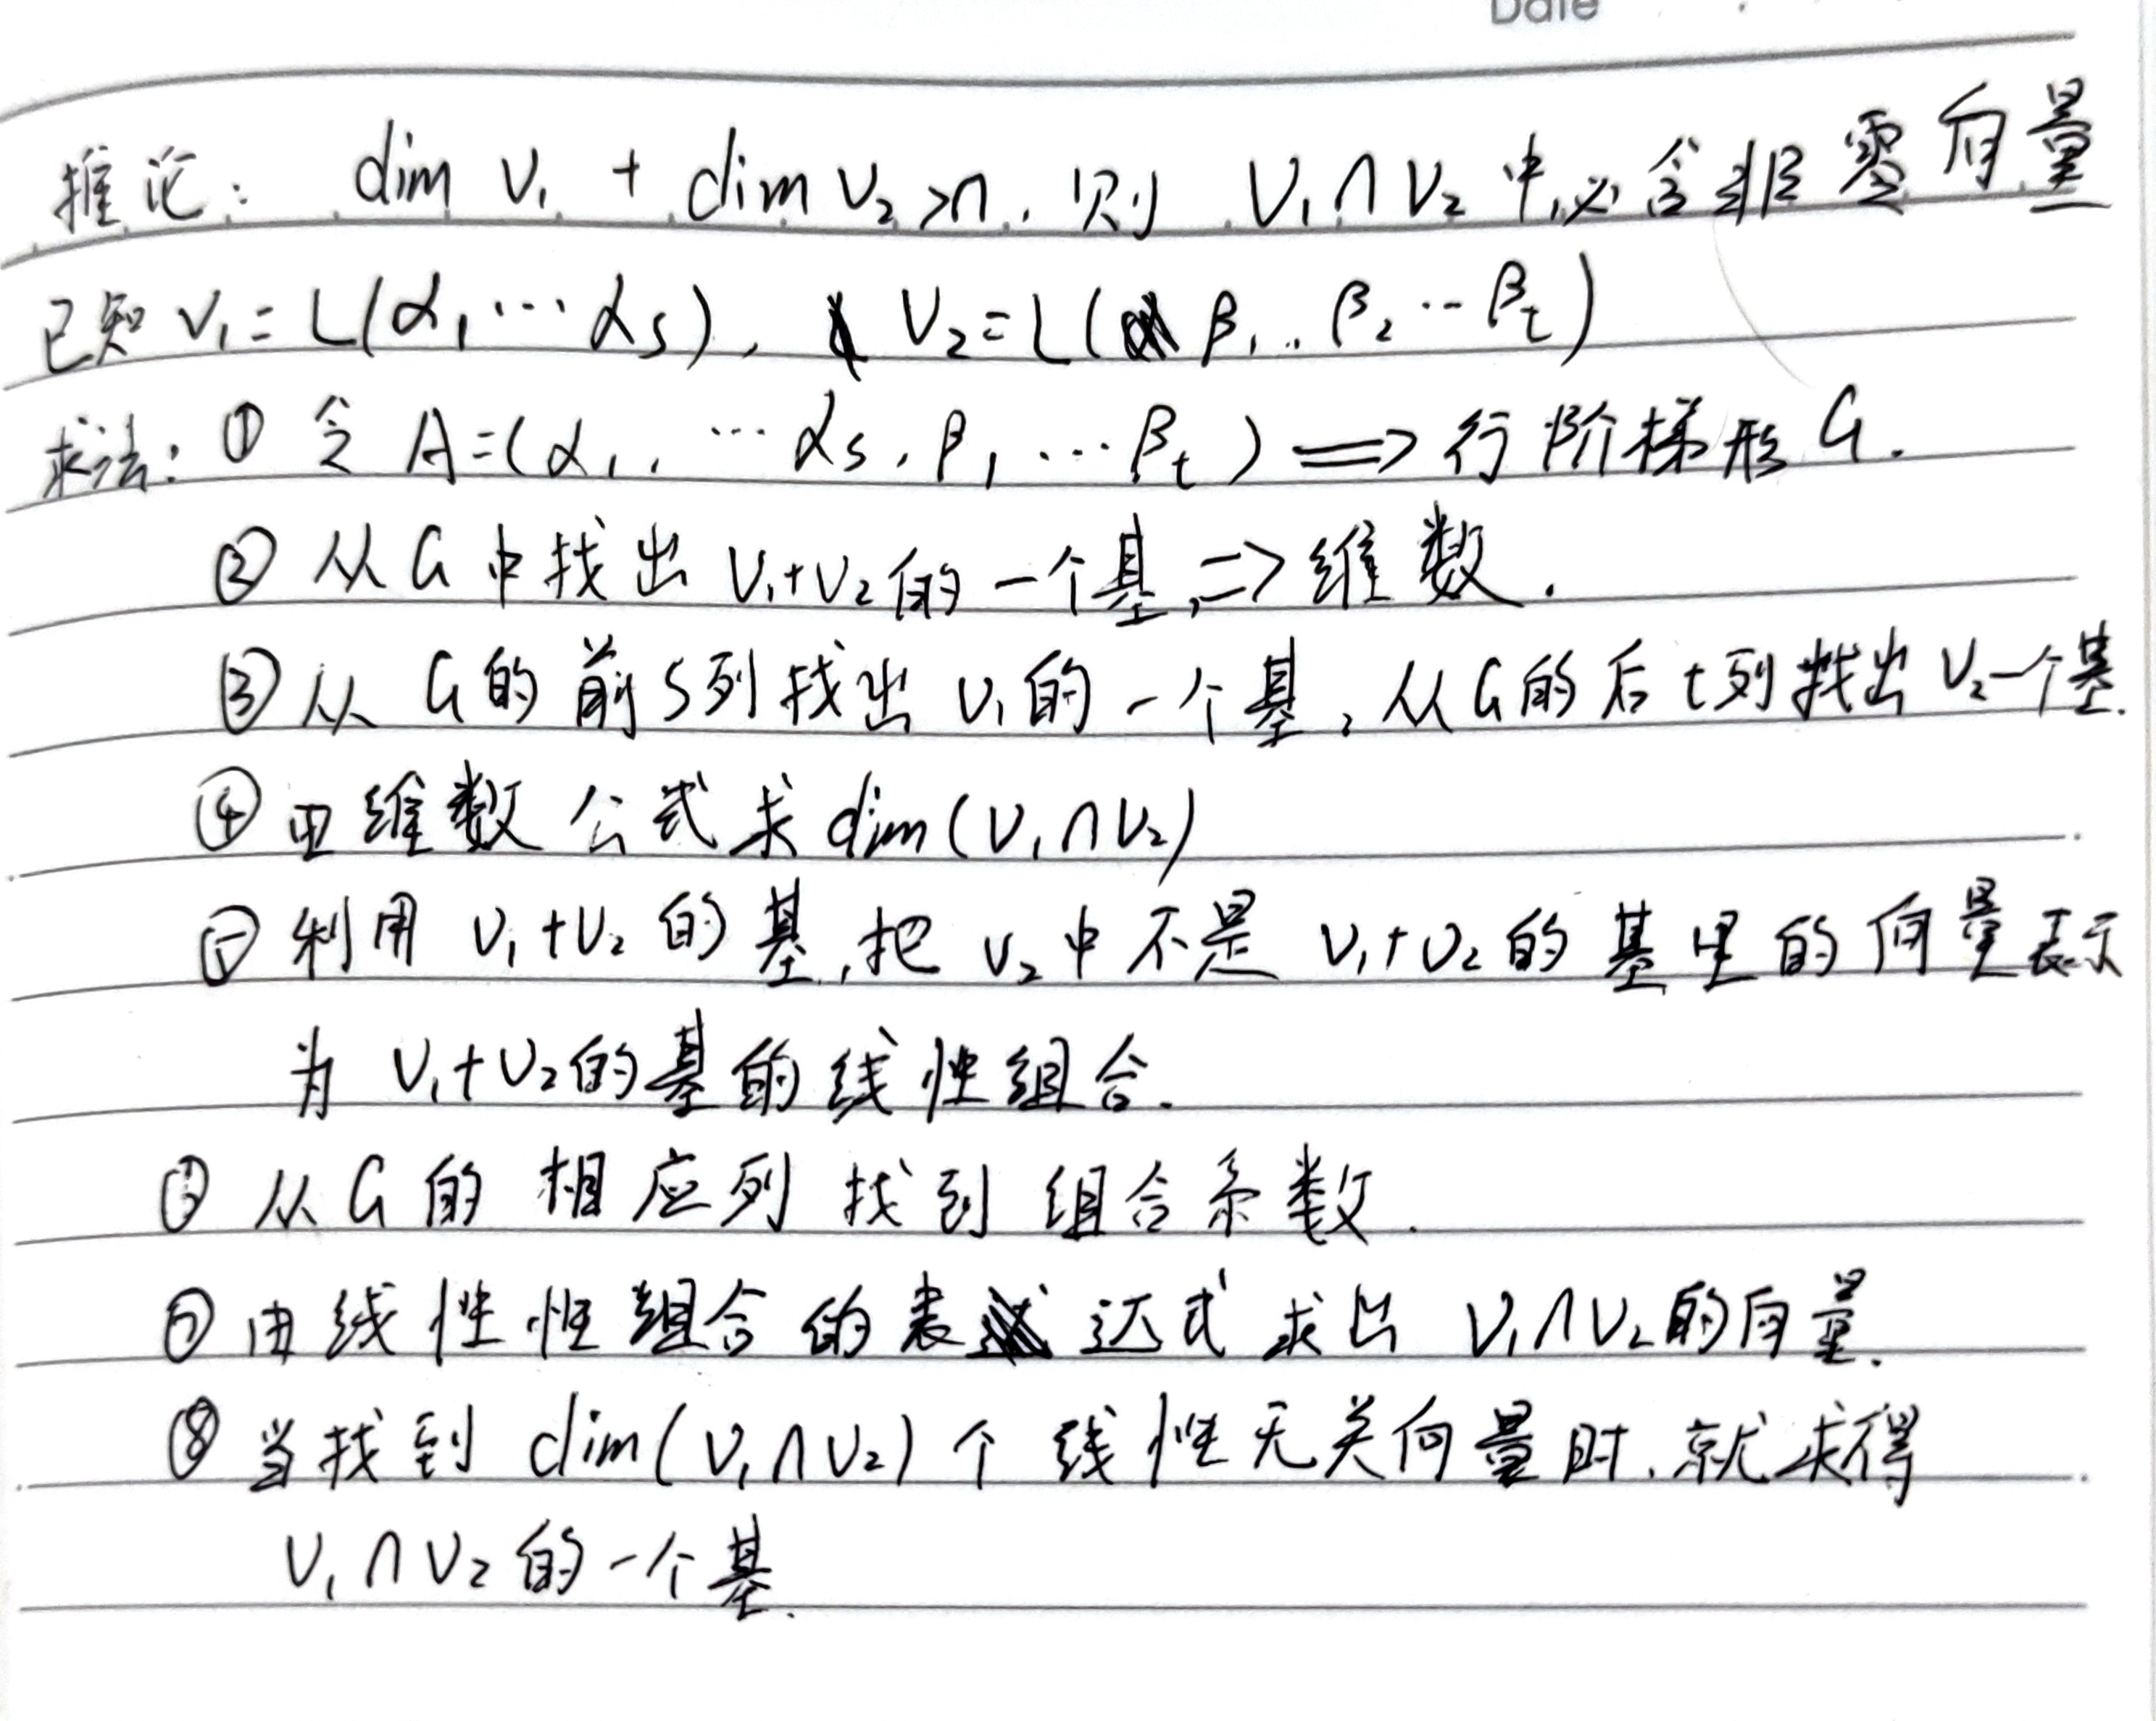 Date
推论: dim V₁ + dim V₂ >n. 则 V₁∩V₂中必含非零向量
已知 V₁=L(α₁⋯αs), V₂=L(β₁..β₂⋯βt)
求法: ① 令 A=(α₁,⋯αs,β₁,⋯βt) ⟹ 行阶梯形G.
② 从G中找出V₁+V₂的一个基,=>维数.
③ 从G的前s列找出V₁的一个基,从G的后t列找出V₂一个基.
④ 由维数公式求dim(V₁∩V₂)
⑤ 利用V₁+V₂的基,把V₂中不是V₁+V₂的基里的向量表示
为V₁+V₂的基的线性组合.
⑥ 从G的相应列找到组合系数.
⑦ 由线性性组合的表达式求出V₁∩V₂的向量.
⑧ 当找到dim(V₁∩V₂)个线性无关向量时.就求得
V₁∩V₂的一个基.